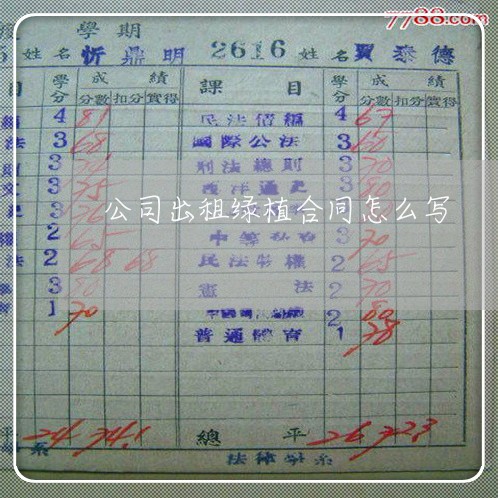 7788.com
學期
姓名 忻鼎明 2616 姓名 賈泰德
目 學分 成績 課目 學分 成績
分數 扣分 實得 分數 扣分 實得
4 81 民法債編 4 67
法 3 68 國際公法 3 60
3 刑法總則 3 70
3 75 西洋通史 3 80
公司出租绿植合同怎么写
2 65 3 70
法 2 68 68 民法物權 2 65
3 80 憲法 2 70
1 70 2 80
普通體育 1 78
平 24 74.1 總平 26 72.3
系 法律學系